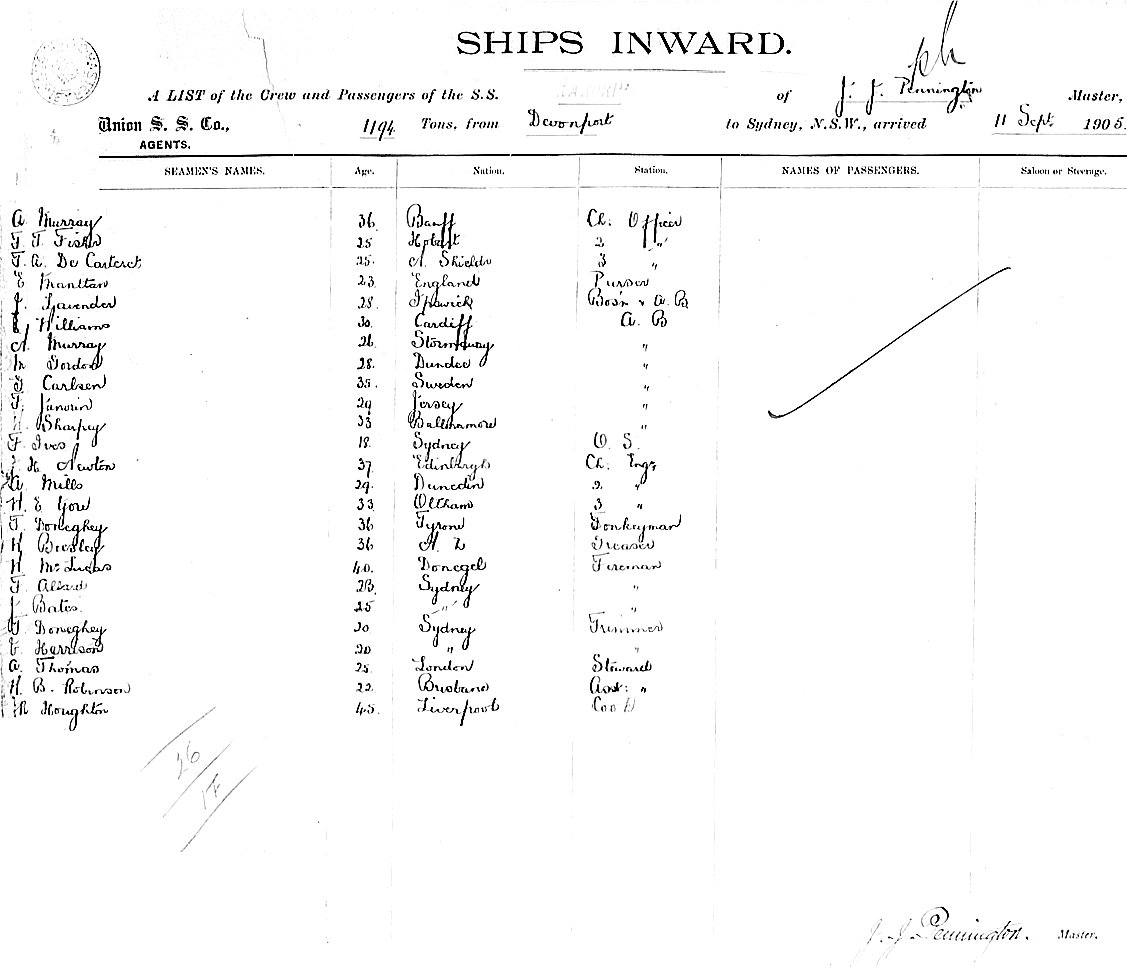 SHIPS INWARD.
A LIST of the Crew and Passengers of the S.S. of J. J. Pennington Master,
Union S. S. Co., 1194 Tons, from Devonport to Sydney, N.S.W., arrived 11 Sept 1905.
AGENTS.
SEAMEN'S NAMES. Age. Nation. Station. NAMES OF PASSENGERS. Saloon or Steerage.
A Murray 36 Banff Ch: Officer
F. T. Fisher 25 Hobart 2 "
F. A. De Carteret 25 N. Shields 3 "
E Manttan 23 England Purser
J. Lavender 28 Ipswich Bos'n & A. B
Williams 30 Cardiff A. B
A. Murray 26 Stornoway "
M Gordon 28 Dundee "
Carlsen 35 Sweden "
29 Jersey "
Sharpey 33 Ballinamore "
F Ives 18 Sydney O. S.
J H Newton 37 Edinburgh Ch: Engr
A. Mills 29 Dunedin 2 "
H. E Gow 33 Oltham 3 "
F. Doneghey 36 Tyrone Donkeyman
H Beesley 36 N. Z Greaser
H McLugas 40 Donegal Fireman
F. Allard 28 Sydney "
J Bates 25 " "
F. Doneghey 20 Sydney Trimmer
C Harrison 20 " "
A. Thomas 25 London Steward
H. B. Robinson 22 Brisbane Asst: "
Houghton 45 Liverpool Cook
26
17
J. J. Pennington. Master.